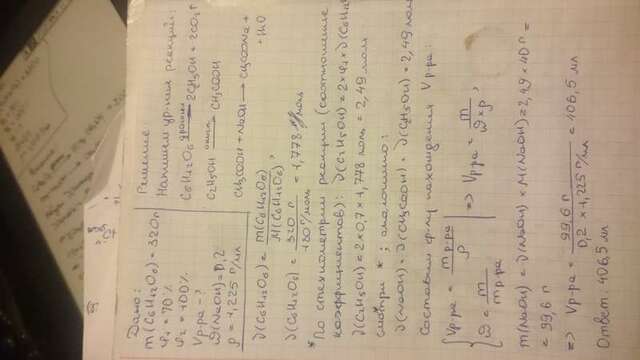 Дано:
m(C6H12O6) = 320г
φ1 = 70%
φ2 = 100%
Vр-ра - ?
ω(NaOH) = 0,2
ρ = 1,225 г/мл
Решение
Напишем ур-ния реакций:
C6H12O6 → 2C2H5OH + 2CO2↑
C2H5OH → CH3COOH
CH3COOH + NaOH → CH3COONa +
+ H2O
ν(C6H12O6) = m(C6H12O6) / M(C6H12O6) ;
ν(C6H12O6) = 320 г / 180 г/моль = 1,778 моль
*По стехиометрии реакции (соотношение
коэффициентов): ν(C2H5OH) = 2×φ1×ν(C6H12O6)
ν(C2H5OH) = 2×0,7×1,778 моль = 2,49 моль
смотри *; аналогично:
ν(NaOH) = ν(CH3COOH) = ν(C2H5OH) = 2,49 моль
Составим ф-лу нахождения Vр-ра:
Vр-ра = mр-ра / ρ
ω = m / mр-ра
=> Vр-ра = m / ω×ρ ;
m(NaOH) = ν(NaOH) × M(NaOH) = 2,49 × 40 г =
= 99,6 г
=> Vр-ра = 99,6 г / 0,2 × 1,225 г/мл = 406,5 мл
Ответ: 406,5 мл